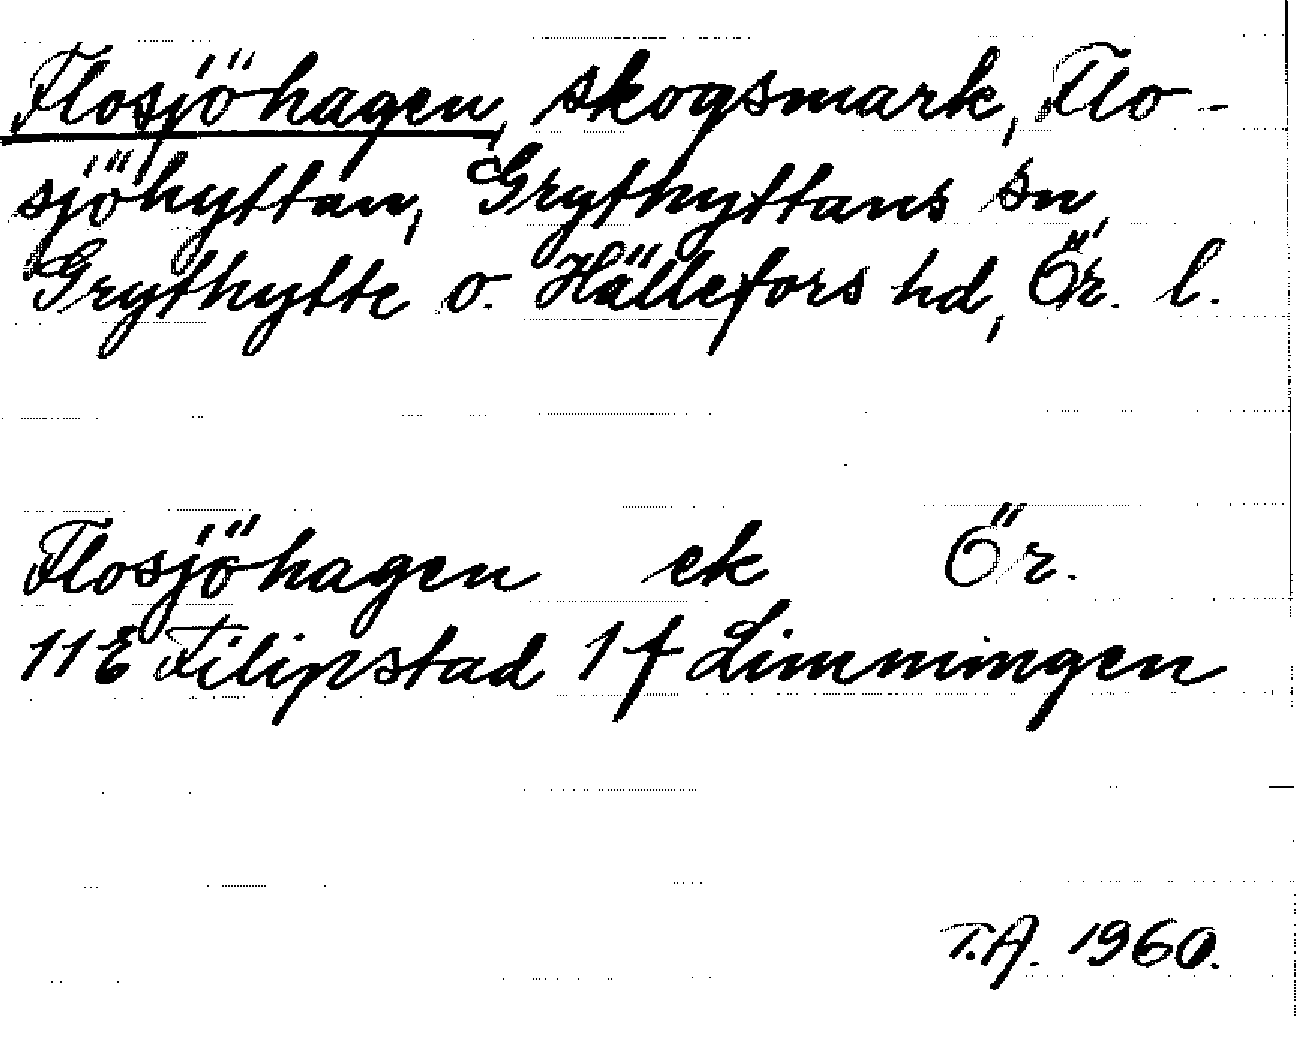 Flosjöhagen, skogsmark, Flo-
sjöhyttan, Grythyttans sn,
Grythytte o. Hällefors hd, Ör. l.
Flosjöhagen ek Ör.
11E Filipstad 1f Limmingen
T.A. 1960.